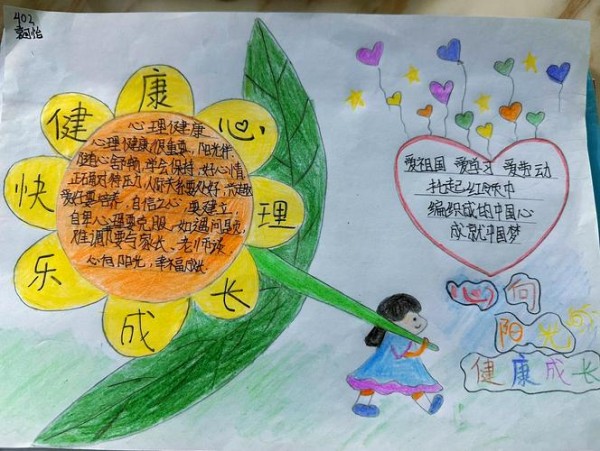 402
健康心理
快乐成长
心理健康
心理健康很重要，阳光伴
随心舒畅，学会保持好心情
正面对待
人际关系要处好，
爱好要培养，自信之心要建立，
自卑心理要克服，如遇问题
难调节要与家长、老师谈
心有阳光，幸福成长
爱祖国 爱学习 爱劳动
扎起红领巾
编织成的中国心
成就中国梦
心向
阳光
健康成长